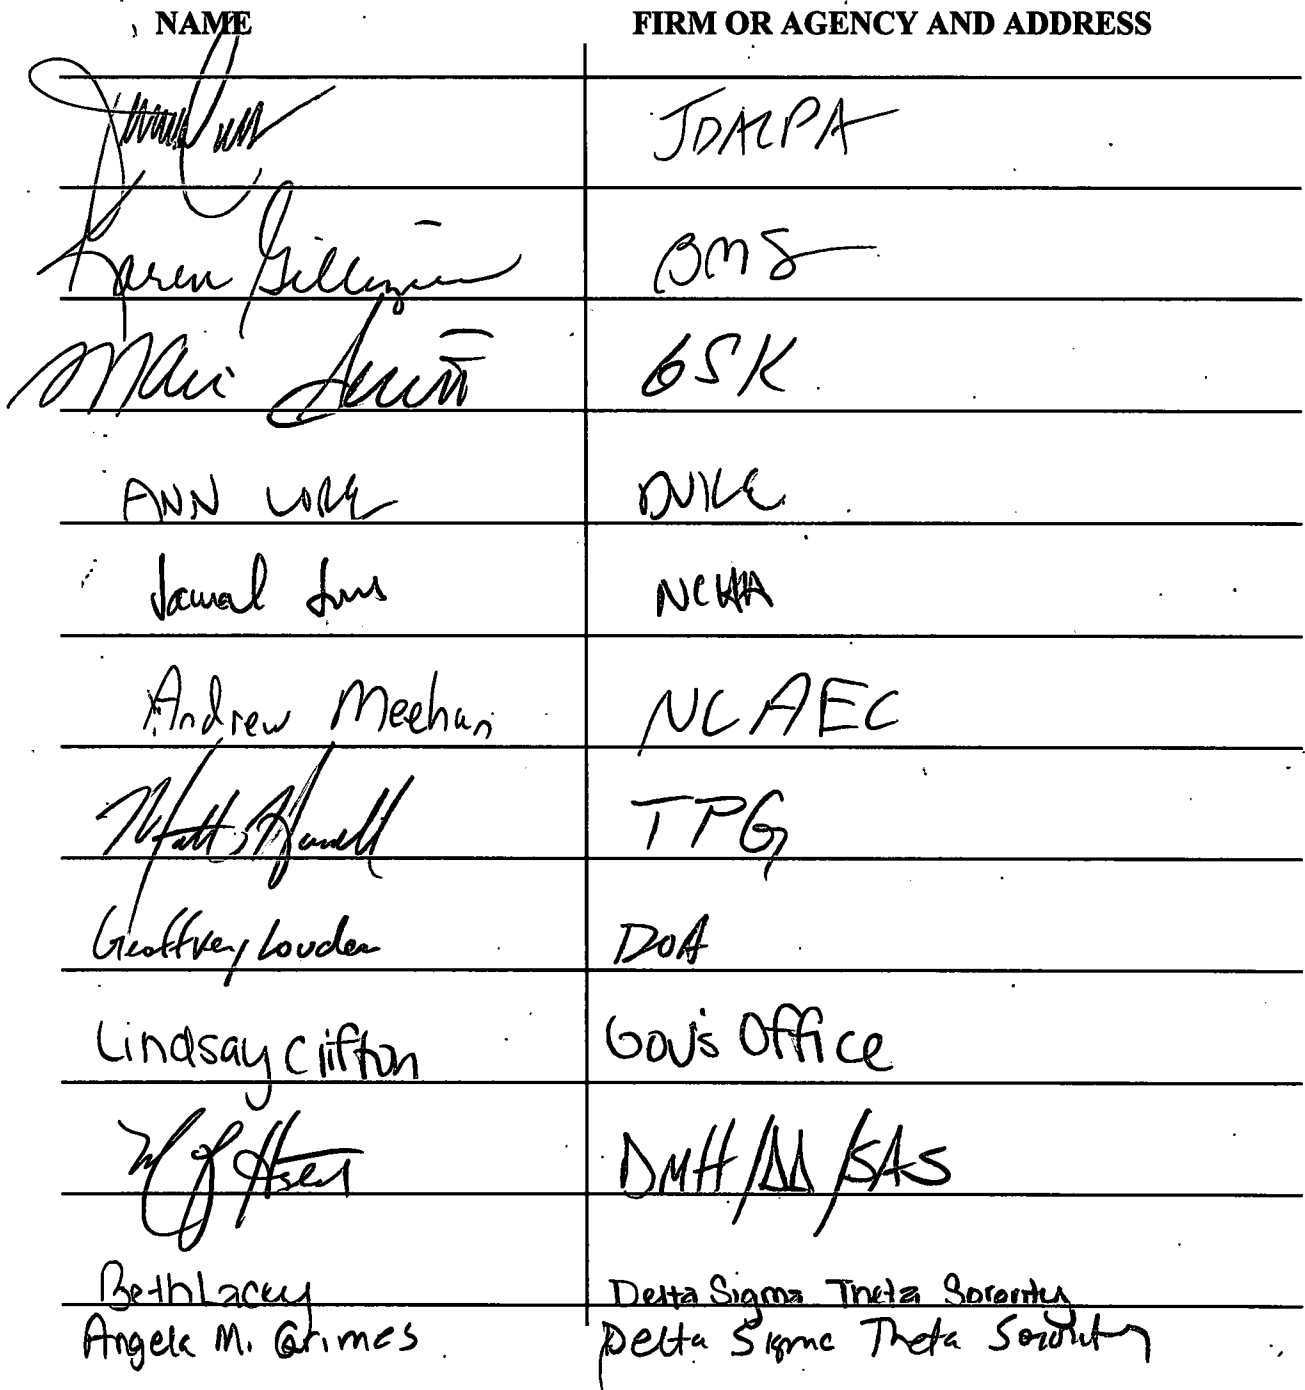 NAME FIRM OR AGENCY AND ADDRESS
JDALPA
Karen Gilligan BMS
GSK
ANN LORE DUKE
Jamal NCHA
Andrew Meehan NCAEC
Matt TPG
Geoffrey Louden DOA
Lindsay Clifton Gov's Office
DMH/DD/SAS
Beth Lacey Delta Sigma Theta Sorority
Angela M. Grimes Delta Sigma Theta Sorority